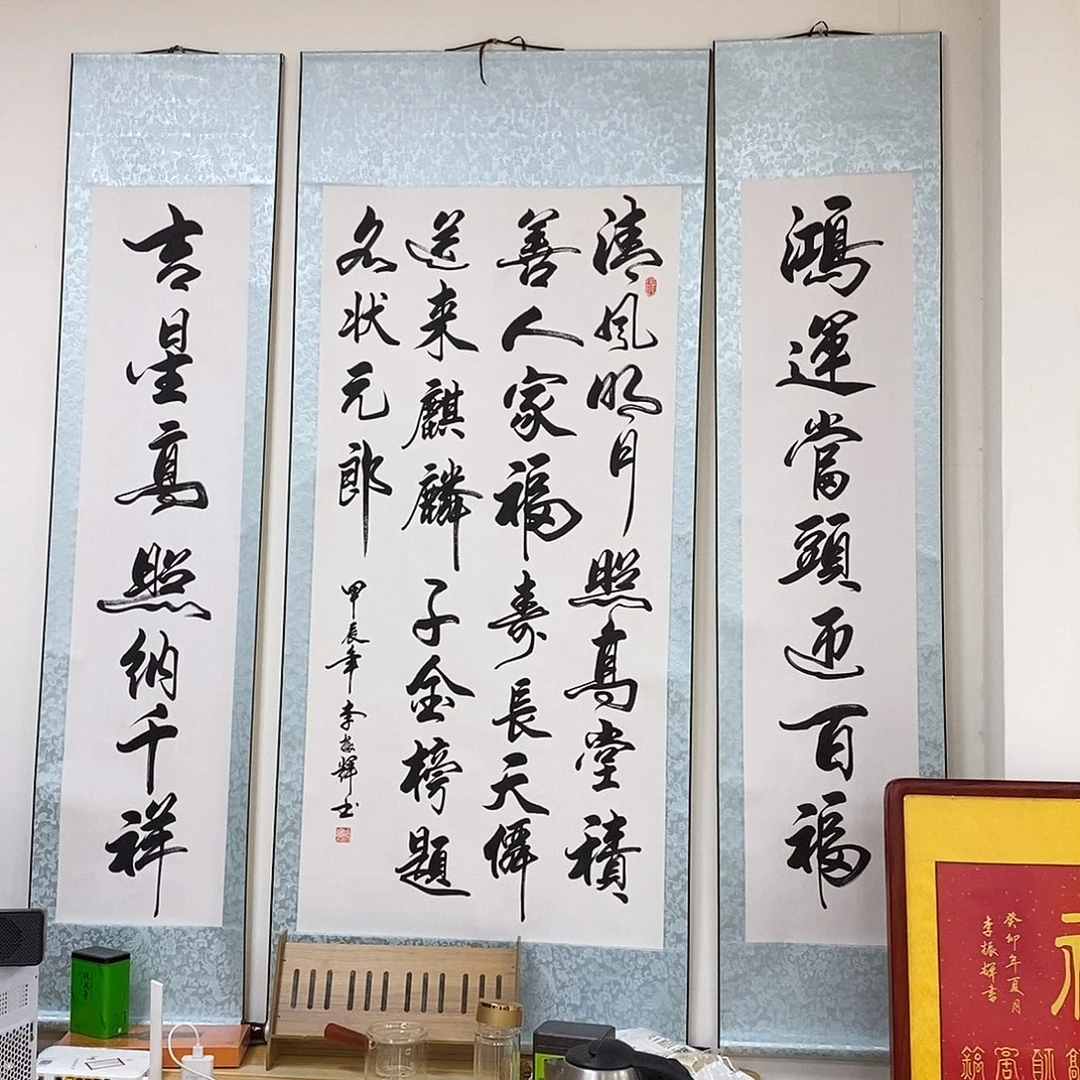 鴻運當頭迎百福
清風明月照高堂積
善人家福壽長天僊
送来麒麟子金榜題
名状元郎
甲辰年李振輝书
吉星高照納千祥
癸卯年夏月
李振輝書